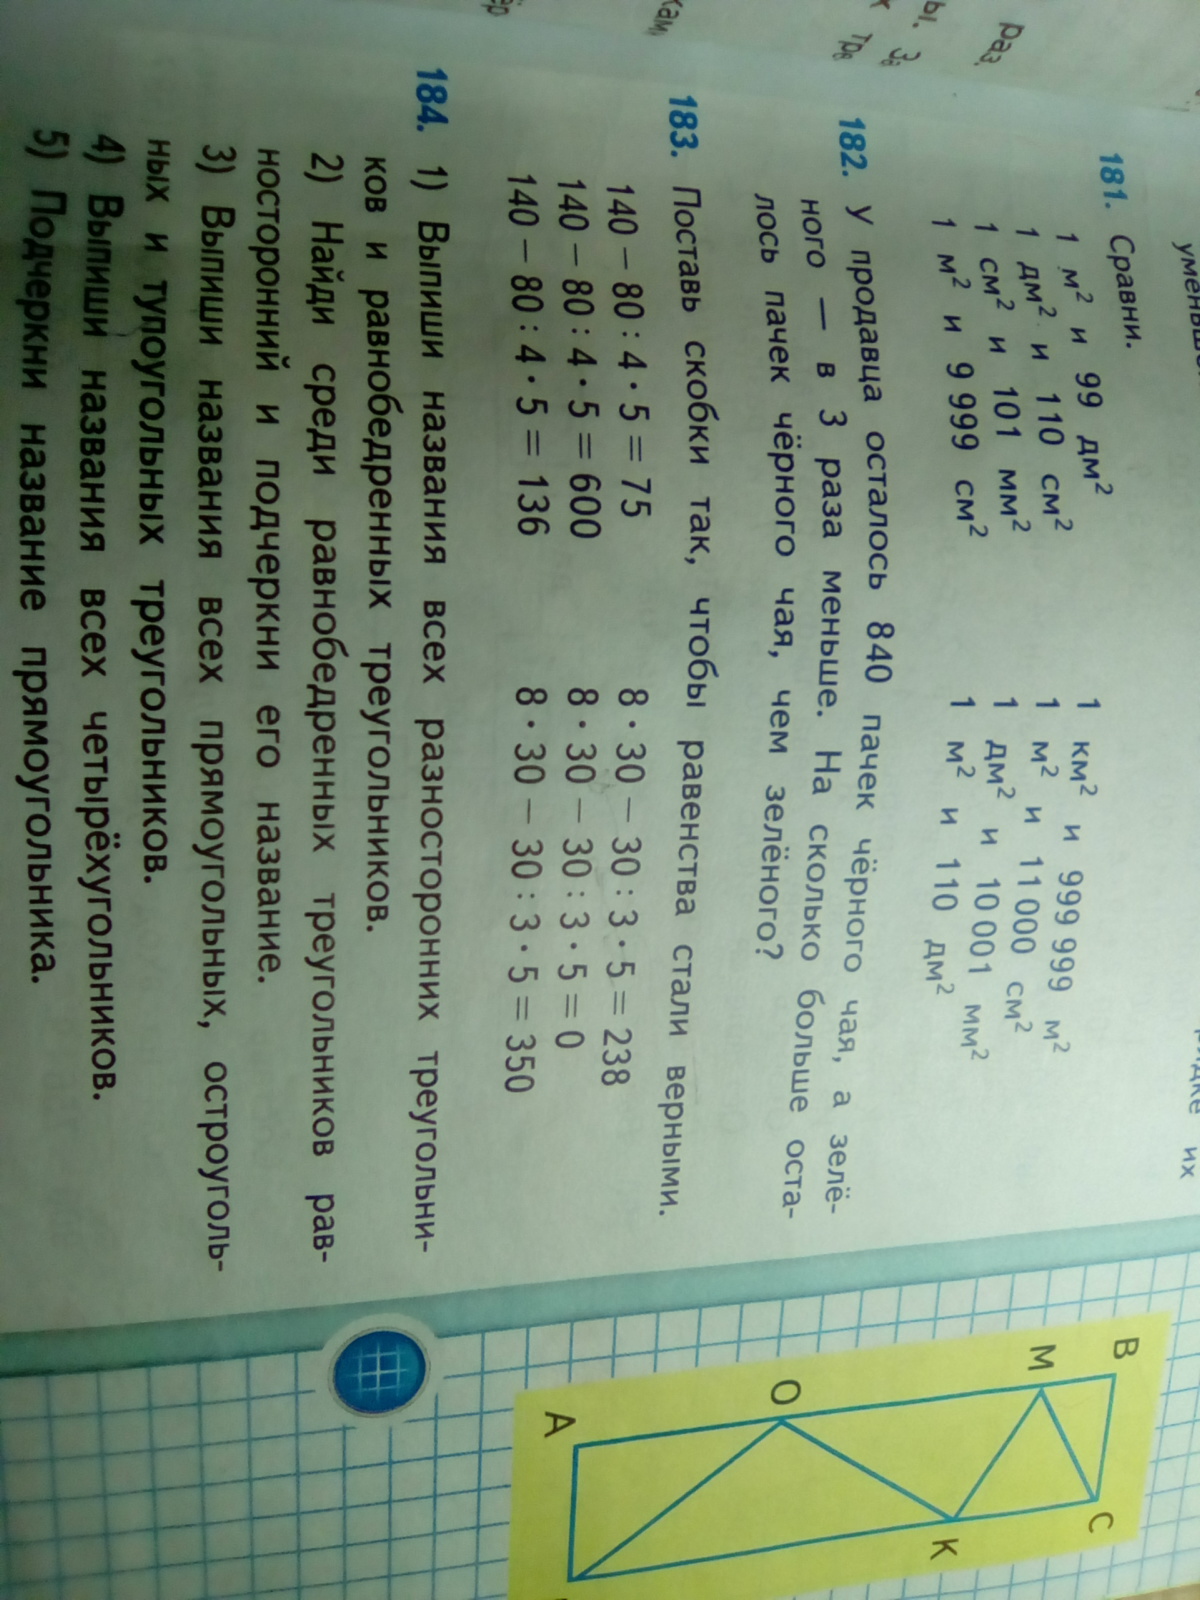 181. Сравни.
1 м² и 99 дм²
1 дм² и 110 см²
1 см² и 101 мм²
1 м² и 9 999 см²
1 км² и 999 999 м²
1 м² и 11 000 см²
1 дм² и 10 001 мм²
1 м² и 110 дм²
182. У продавца осталось 840 пачек чёрного чая, а зелё-
ного — в 3 раза меньше. На сколько больше оста-
лось пачек чёрного чая, чем зелёного?
183. Поставь скобки так, чтобы равенства стали верными.
140 – 80 : 4 · 5 = 75
140 – 80 : 4 · 5 = 600
140 – 80 : 4 · 5 = 136
8 · 30 – 30 : 3 · 5 = 238
8 · 30 – 30 : 3 · 5 = 0
8 · 30 – 30 : 3 · 5 = 350
184. 1) Выпиши названия всех разносторонних треугольни-
ков и равнобедренных треугольников.
2) Найди среди равнобедренных треугольников рав-
носторонний и подчеркни его название.
3) Выпиши названия всех прямоугольных, остроуголь-
ных и тупоугольных треугольников.
4) Выпиши названия всех четырёхугольников.
5) Подчеркни название прямоугольника.
B
C
M
K
O
A